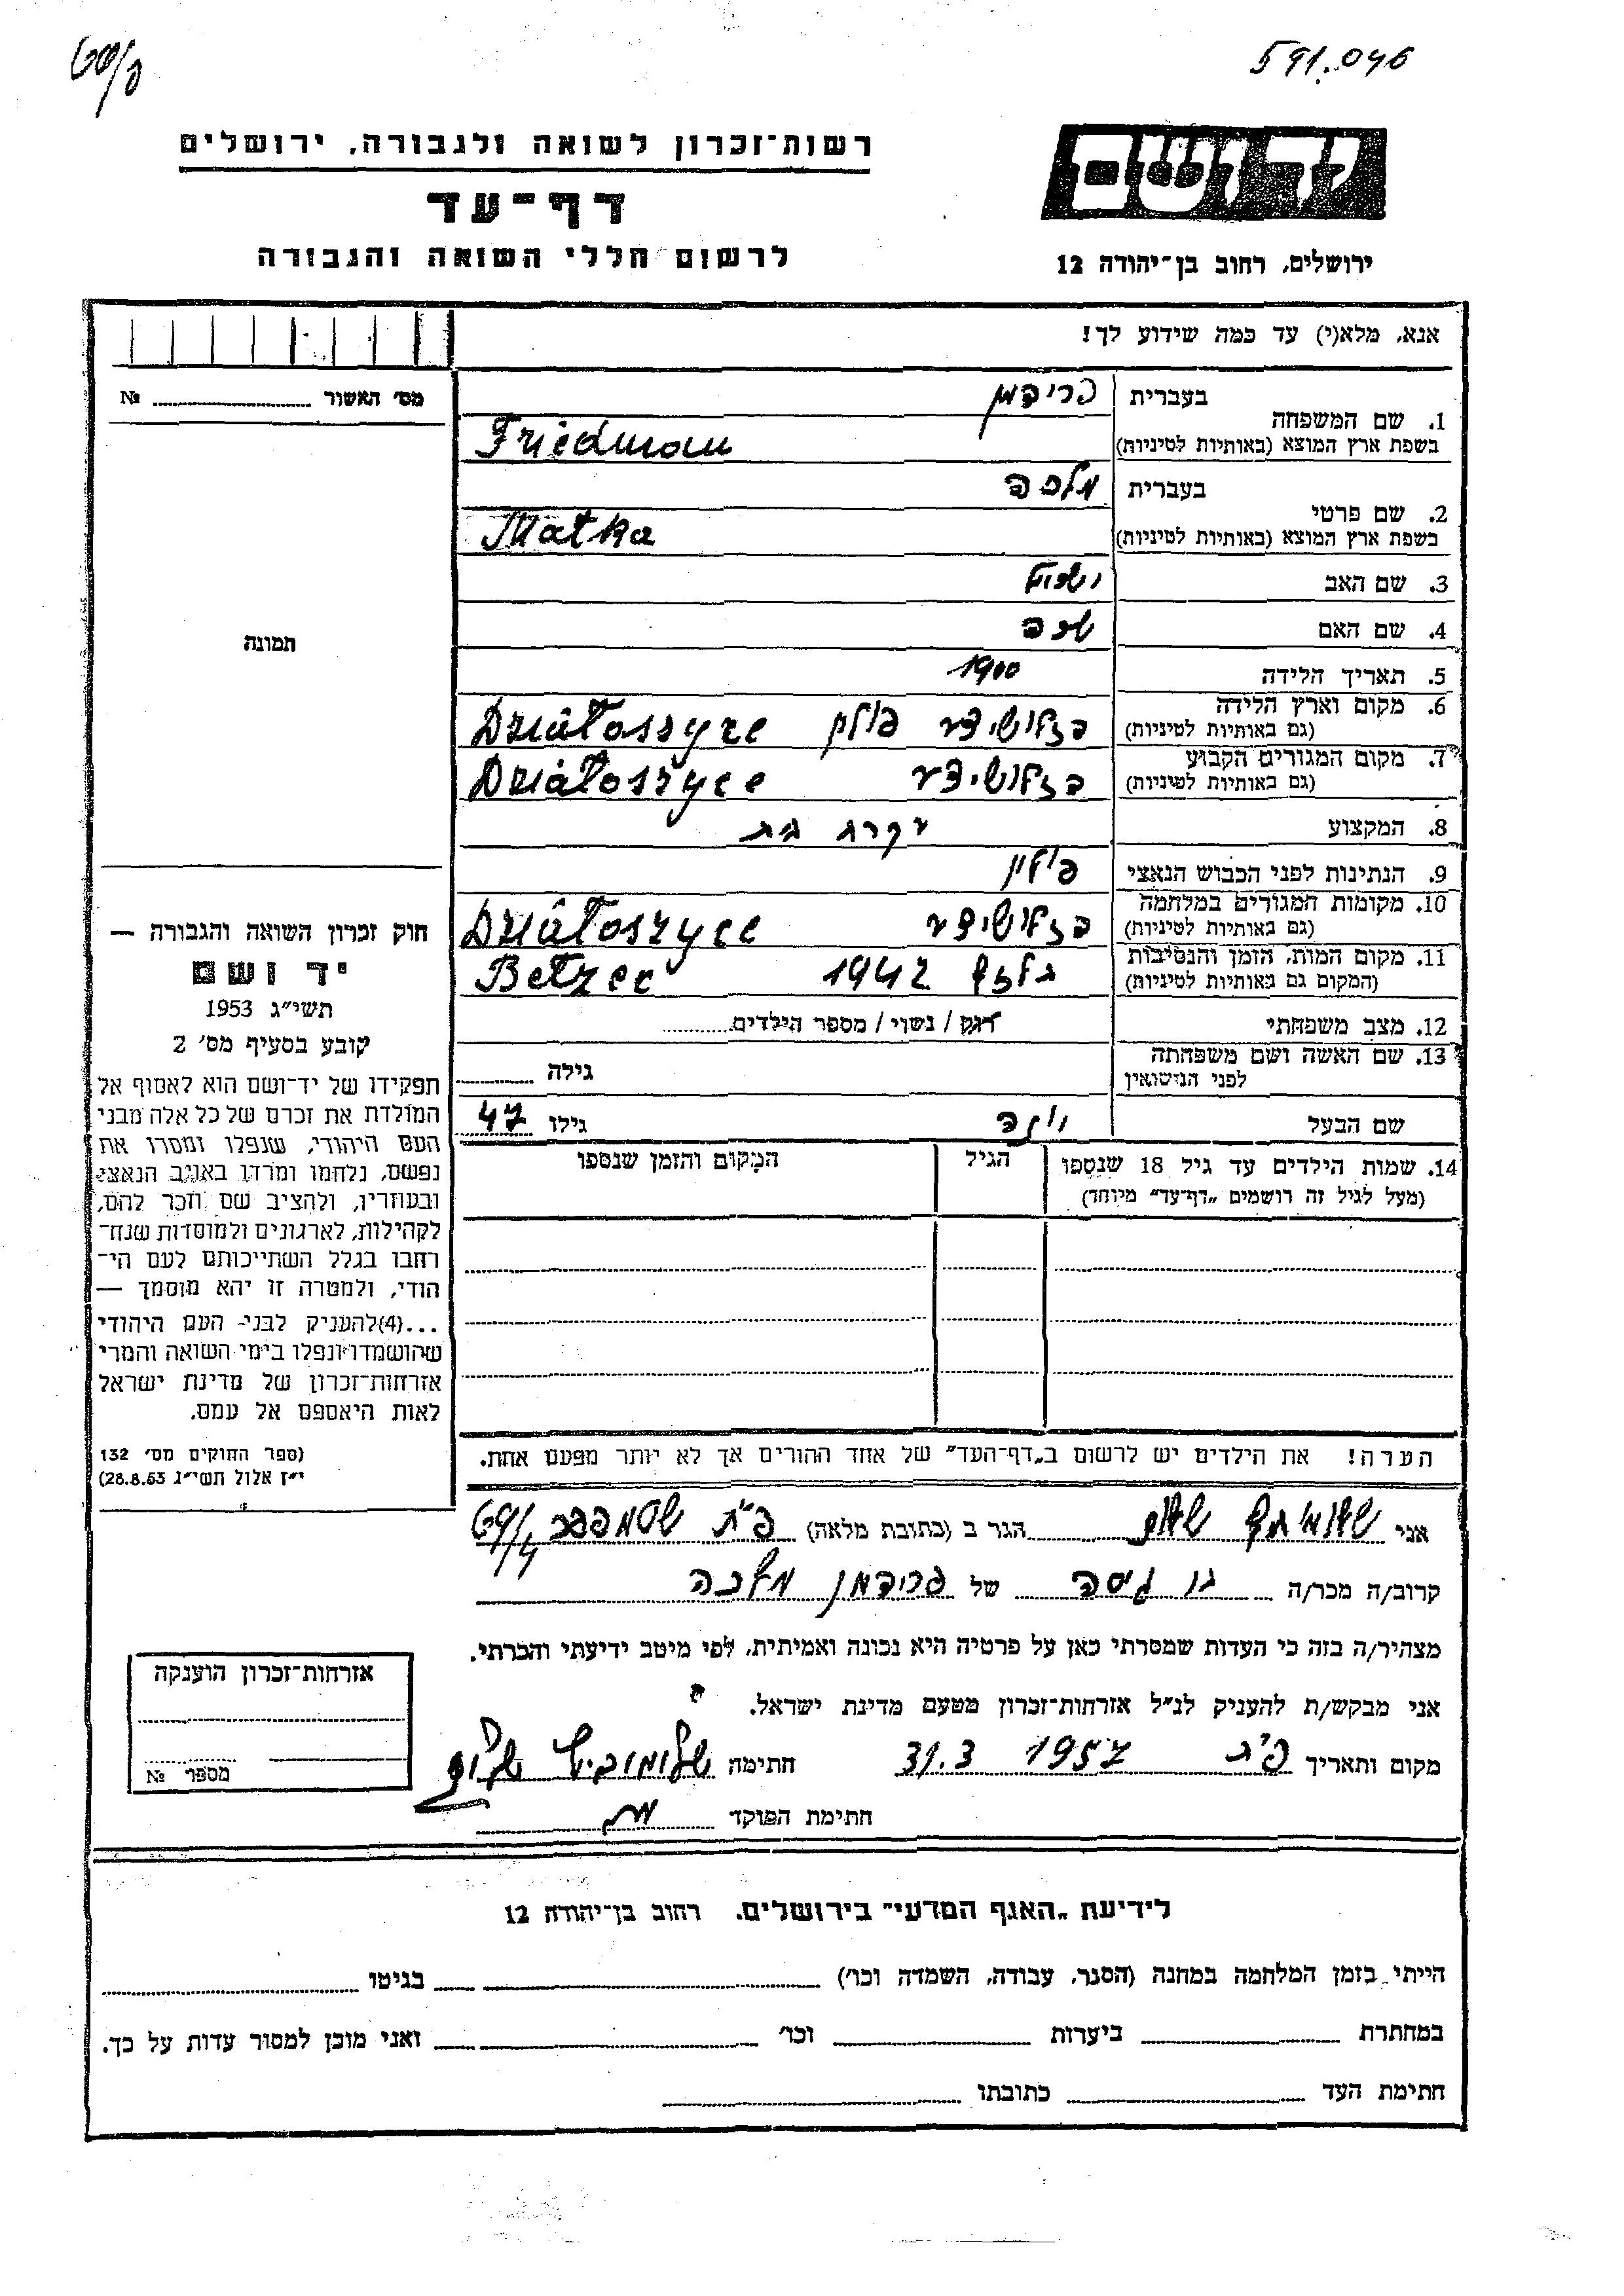 591.046
רשות־זכרון לשואה ולגבורה, ירושלים
דף־עד
לרשום חללי השואה והגבורה
יד ושם
ירושלים, רחוב בן־יהודה 12
אנא, מלא(י) עד כמה שידוע לך!
מס׳ האשור № ........
1. שם המשפחה בעברית פרידמן
בשפת ארץ המוצא (באותיות לטיניות) Friedman
2. שם פרטי בעברית מלכה
בשפת ארץ המוצא (באותיות לטיניות) Małka
3. שם האב
4. שם האם
5. תאריך הלידה 1900
6. מקום וארץ הלידה (גם באותיות לטיניות) פולין Działoszyce
7. מקום המגורים הקבוע (גם באותיות לטיניות) Działoszyce
8. המקצוע עקרת בית
9. הנתינות לפני הכבוש הנאצי פולין
10. מקומות המגורים במלחמה (גם באותיות לטיניות) Działoszyce
11. מקום המות, הזמן והנסיבות (המקום גם באותיות לטיניות) 1942 Betzec
12. מצב משפחתי רווק / נשוי / מספר הילדים........
13. שם האשה ושם משפחתה לפני הנישואין גילה ........
שם הבעל גילו 47
14. שמות הילדים עד גיל 18 שנספו
(מעל לגיל זה רושמים „דף־עד״ מיוחד)
הגיל
המקום והזמן שנספו
הערה! את הילדים יש לרשום ב„דף־העד״ של אחד ההורים אך לא יותר מפעם אחת.
תמונה
חוק זכרון השואה והגבורה —
יד ושם
תשי״ג 1953
קובע בסעיף מס׳ 2
תפקידו של יד־ושם הוא לאסוף אל
המולדת את זכרם של כל אלה מבני
העם היהודי, שנפלו ומסרו את
נפשם, נלחמו ומרדו באויב הנאצי
ובעוזריו, ולהציב שם וזכר להם,
לקהילות, לארגונים ולמוסדות שנח־
רבו בגלל השתייכותם לעם הי־
הודי, ולמטרה זו יהא מוסמך —
...(4)להעניק לבני העם היהודי
שהושמדו ונפלו בימי השואה והמרי
אזרחות־זכרון של מדינת ישראל
לאות היאספם אל עמם.
(ספר החוקים מס׳ 132
י״ז אלול תשי״ג 28.8.53)
אני הגר ב (כתובת מלאה) פ״ת שטמפפר 69/4
קרוב/ה מכר/ה גיסה של פרידמן מלכה
מצהיר/ה בזה כי העדות שמסרתי כאן על פרטיה היא נכונה ואמיתית, לפי מיטב ידיעתי והכרתי.
אני מבקש/ת להעניק לנ״ל אזרחות־זכרון מטעם מדינת ישראל.
מקום ותאריך פ״ת 31.3 1957 חתימה שלומוביץ
חתימת הפוקד
אזרחות־זכרון הוענקה
מספר №
לידיעת „האגף המדעי״ בירושלים, רחוב בן־יהודה 12
הייתי בזמן המלחמה במחנה (הסגר, עבודה, השמדה וכו׳) ........ בגיטו ........
במחתרת ........ ביערות ........ וכו׳ ........ ואני מוכן למסור עדות על כך.
חתימת העד ........ כתובתו ........